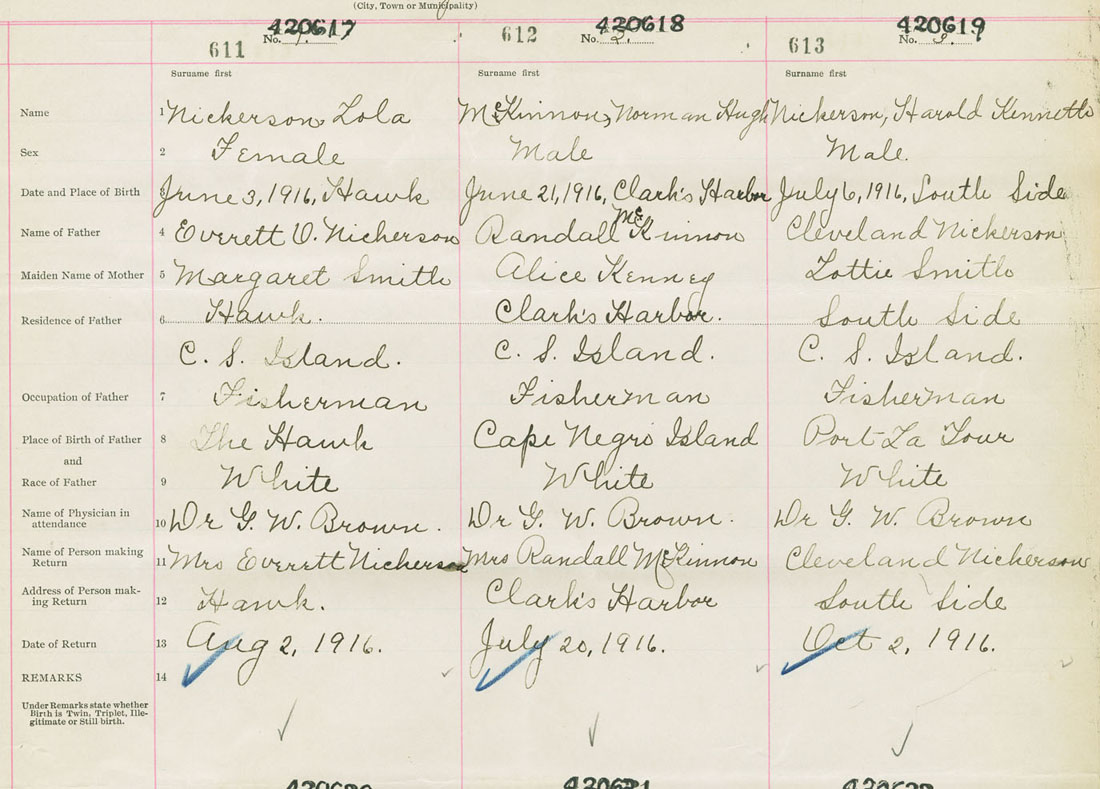 (City, Town or Municipality)
420617 420618 420619
611 No. 1. 612 No. 2. 613 No. 3.
Surname first Surname first Surname first
Name 1 Nickerson, Lola McKinnon, Norman Hugh Nickerson, Harold Kenneth
Sex 2 Female Male Male.
Date and Place of Birth 3 June 3, 1916, Hawk June 21, 1916, Clark's Harbor July 6, 1916, South Side
Name of Father 4 Everett O. Nickerson Randall McKinnon Cleveland Nickerson
Maiden Name of Mother 5 Margaret Smith Alice Kenney Lottie Smith
Residence of Father 6 Hawk. Clark's Harbor. South Side
C. S. Island. C. S. Island. C. S. Island.
Occupation of Father 7 Fisherman Fisherman Fisherman
Place of Birth of Father 8 The Hawk Cape Negro Island Port La Tour
and
Race of Father 9 White White White
Name of Physician in
attendance 10 Dr G. W. Brown. Dr G. W. Brown. Dr G. W. Brown
Name of Person making
Return 11 Mrs Everett Nickerson Mrs Randall McKinnon Cleveland Nickerson
Address of Person mak-
ing Return 12 Hawk. Clark's Harbor South Side
Date of Return 13 Aug 2, 1916. July 20, 1916. Oct 2, 1916.
REMARKS 14
Under Remarks state whether
Birth is Twin, Triplet, Ille-
gitimate or Still birth.